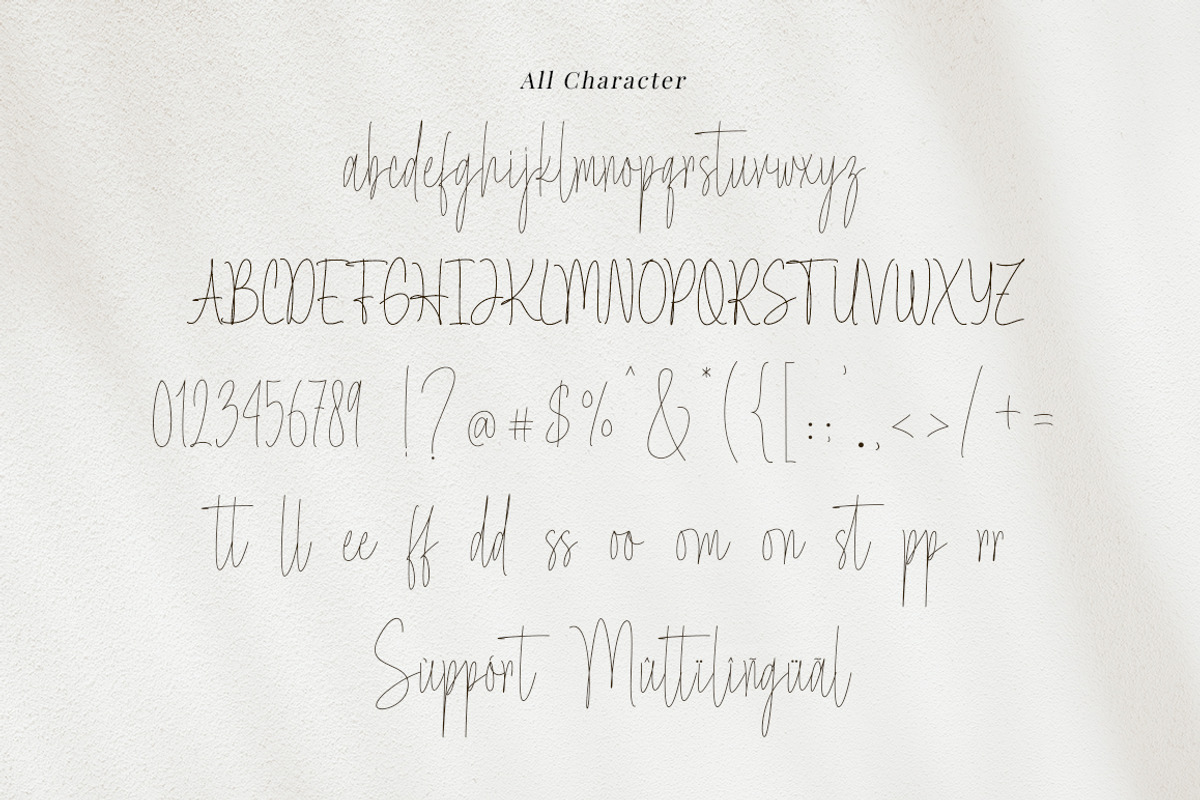 All Character
abcdefghijklmnopqrstuvwxyz
ABCDEFGHIJKLMNOPQRSTUVWXYZ
0123456789 !?@#$%^&*({[:;'.,<>/+=
tt ll ee ff dd ss oo om on st pp rr
Sùppórt Mûttïlîñgüãl